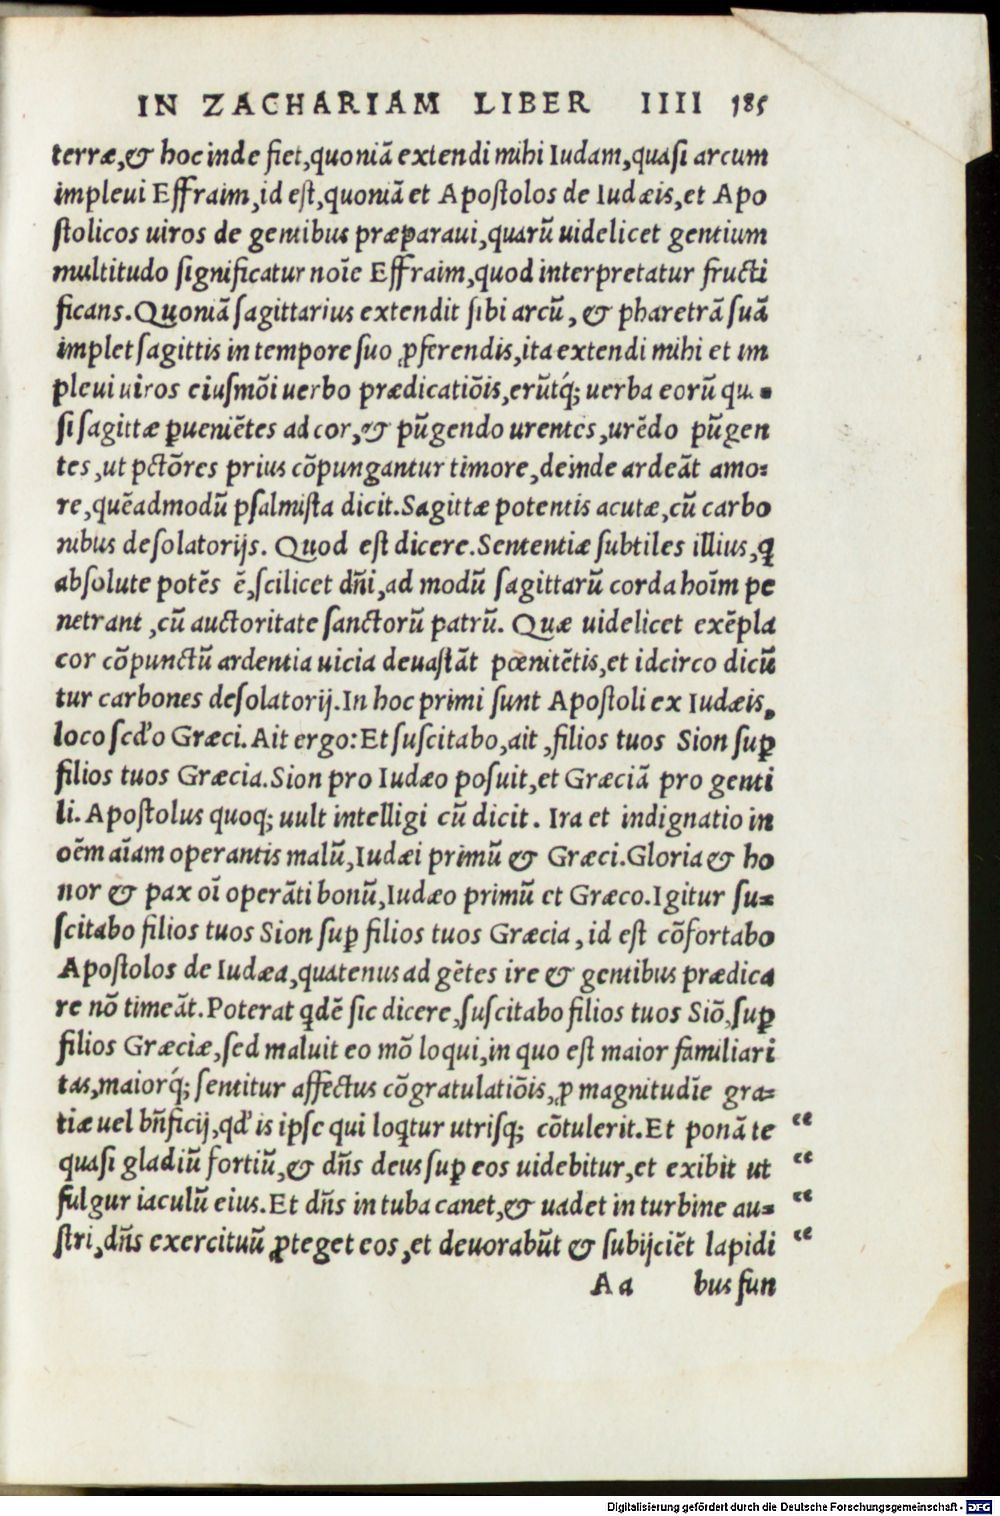 IN ZACHARIAM LIBER IIII 185
terræ,& hoc inde fiet,quoniā extendi mihi Iudam,quasi arcum
implevi Effraim,id est,quoniā et Apostolos de Iudæis,et Apo
stolicos uiros de gentibus præparaui,quarū uidelicet gentium
multitudo significatur noīe Effraim,quod interpretatur fructi
ficans.Quoniā sagittarius extendit sibi arcū, & pharetrā suā
implet sagittis in tempore suo ꝓferendis,ita extendi mihi et im
plevi uiros eiusmōi uerbo prædicatiōis,erūtq́; uerba eorū
si sagittæ ꝑueniētes ad cor,& pūgendo urentes,urēdo pūgen
tes,ut pctōres prius cōpungantur timore,deinde ardeāt amo-
re,quēadmodū psalmista dicit.Sagittæ potentis acutæ,cū carbo
nibus desolatorijs. Quod est dicere.Sententiæ subtiles illius,ꝗ
absolute potēs ē,scilicet dñi,ad modū sagittarū corda hoīm pe
netrant,cū auctoritate sanctorū patrū. Quæ uidelicet exēpla
cor cōpunctū ardentia uicia deuastāt pœnitētis,et idcirco dicū
tur carbones desolatorij.In hoc primi sunt Apostoli ex Iudæis,
loco scďo Græci.Ait ergo:Et suscitabo,ait,filios tuos Sion suꝑ
filios tuos Græcia.Sion pro Iudæo posuit,et Græciā pro genti
li.Apostolus quoq; uult intelligi cū dicit. Ira et indignatio in
oēm aīam operantis malū,Iudæi primū & Græci.Gloria & ho
nor & pax oī operāti bonū,Iudæo primū et Græco.Igitur su-
scitabo filios tuos Sion suꝑ filios tuos Græcia,id est cōfortabo
Apostolos de Iudæa,quatenus ad gētes ire & gentibus prædica
re nō timeāt.Poterat ꝗdē sic dicere,suscitabo filios tuos Siō,suꝑ
filios Græciæ,sed maluit eo mō loqui,in quo est maior familiari
tas,maiorq́; sentitur affectus cōgratulatiōis,ꝓ magnitudīe gra-
tiæ uel bñficij,qď is ipse qui loꝗtur utrisq; cōtulerit.Et ponā te “
quasi gladiū fortiū,& dñs deus suꝑ eos uidebitur,et exibit ut “
fulgur iaculū eius.Et dñs in tuba canet,& uadet in turbine au- “
stri,dñs exercituū ꝓteget eos,et deuorabūt & subijciēt lapidi “
Aa bus fun
Digitalisierung gefördert durch die Deutsche Forschungsgemeinschaft - DFG